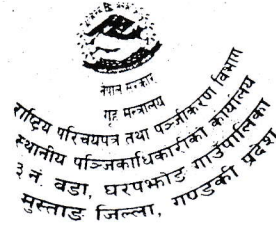 नेपाल सरकार
गृह मन्त्रालय
राष्ट्रिय परिचयपत्र तथा पञ्जीकरण विभाग
स्थानीय पञ्जिकाधिकारीको कार्यालय
३ नं. वडा, घरपझोङ गाउँपालिका
मुस्ताङ जिल्ला, गण्डकी प्रदेश